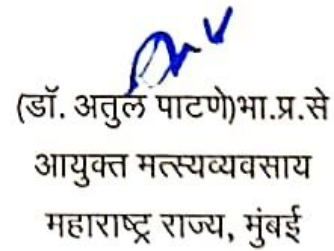 (डॉ. अतुल पाटणे)भा.प्र.से
आयुक्त मत्स्यव्यवसाय
महाराष्ट्र राज्य, मुंबई